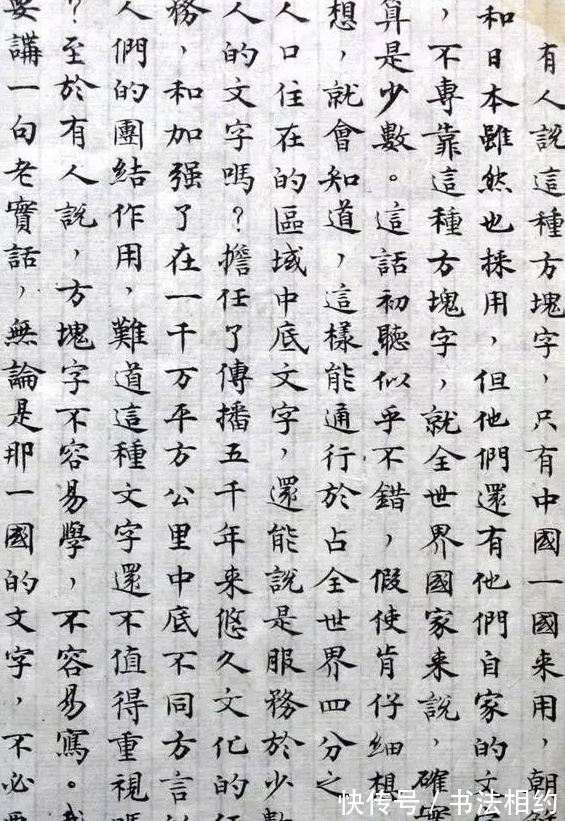 有人說這種方塊字，只有中國一國來用，朝
和日本雖然也採用，但他們還有他們自家的文
，不專靠這種方塊字，就全世界國家來說，確實
算是少數。這話初聽似乎不錯，假使肯仔細想
想，就會知道，這樣能通行於占全世界四分之
人口住在的區域中底文字，還能說是服務於少數
人的文字嗎？擔任了傳播五千年來悠久文化的任
務，和加强了在一千万平方公里中底不同方言
人們的團結作用，難道這種文字還不值得重視嗎
？至於有人說，方塊字不容易學，不容易寫。我
要講一句老實話，無論是那一國的文字，不必要
快传号/书法相约